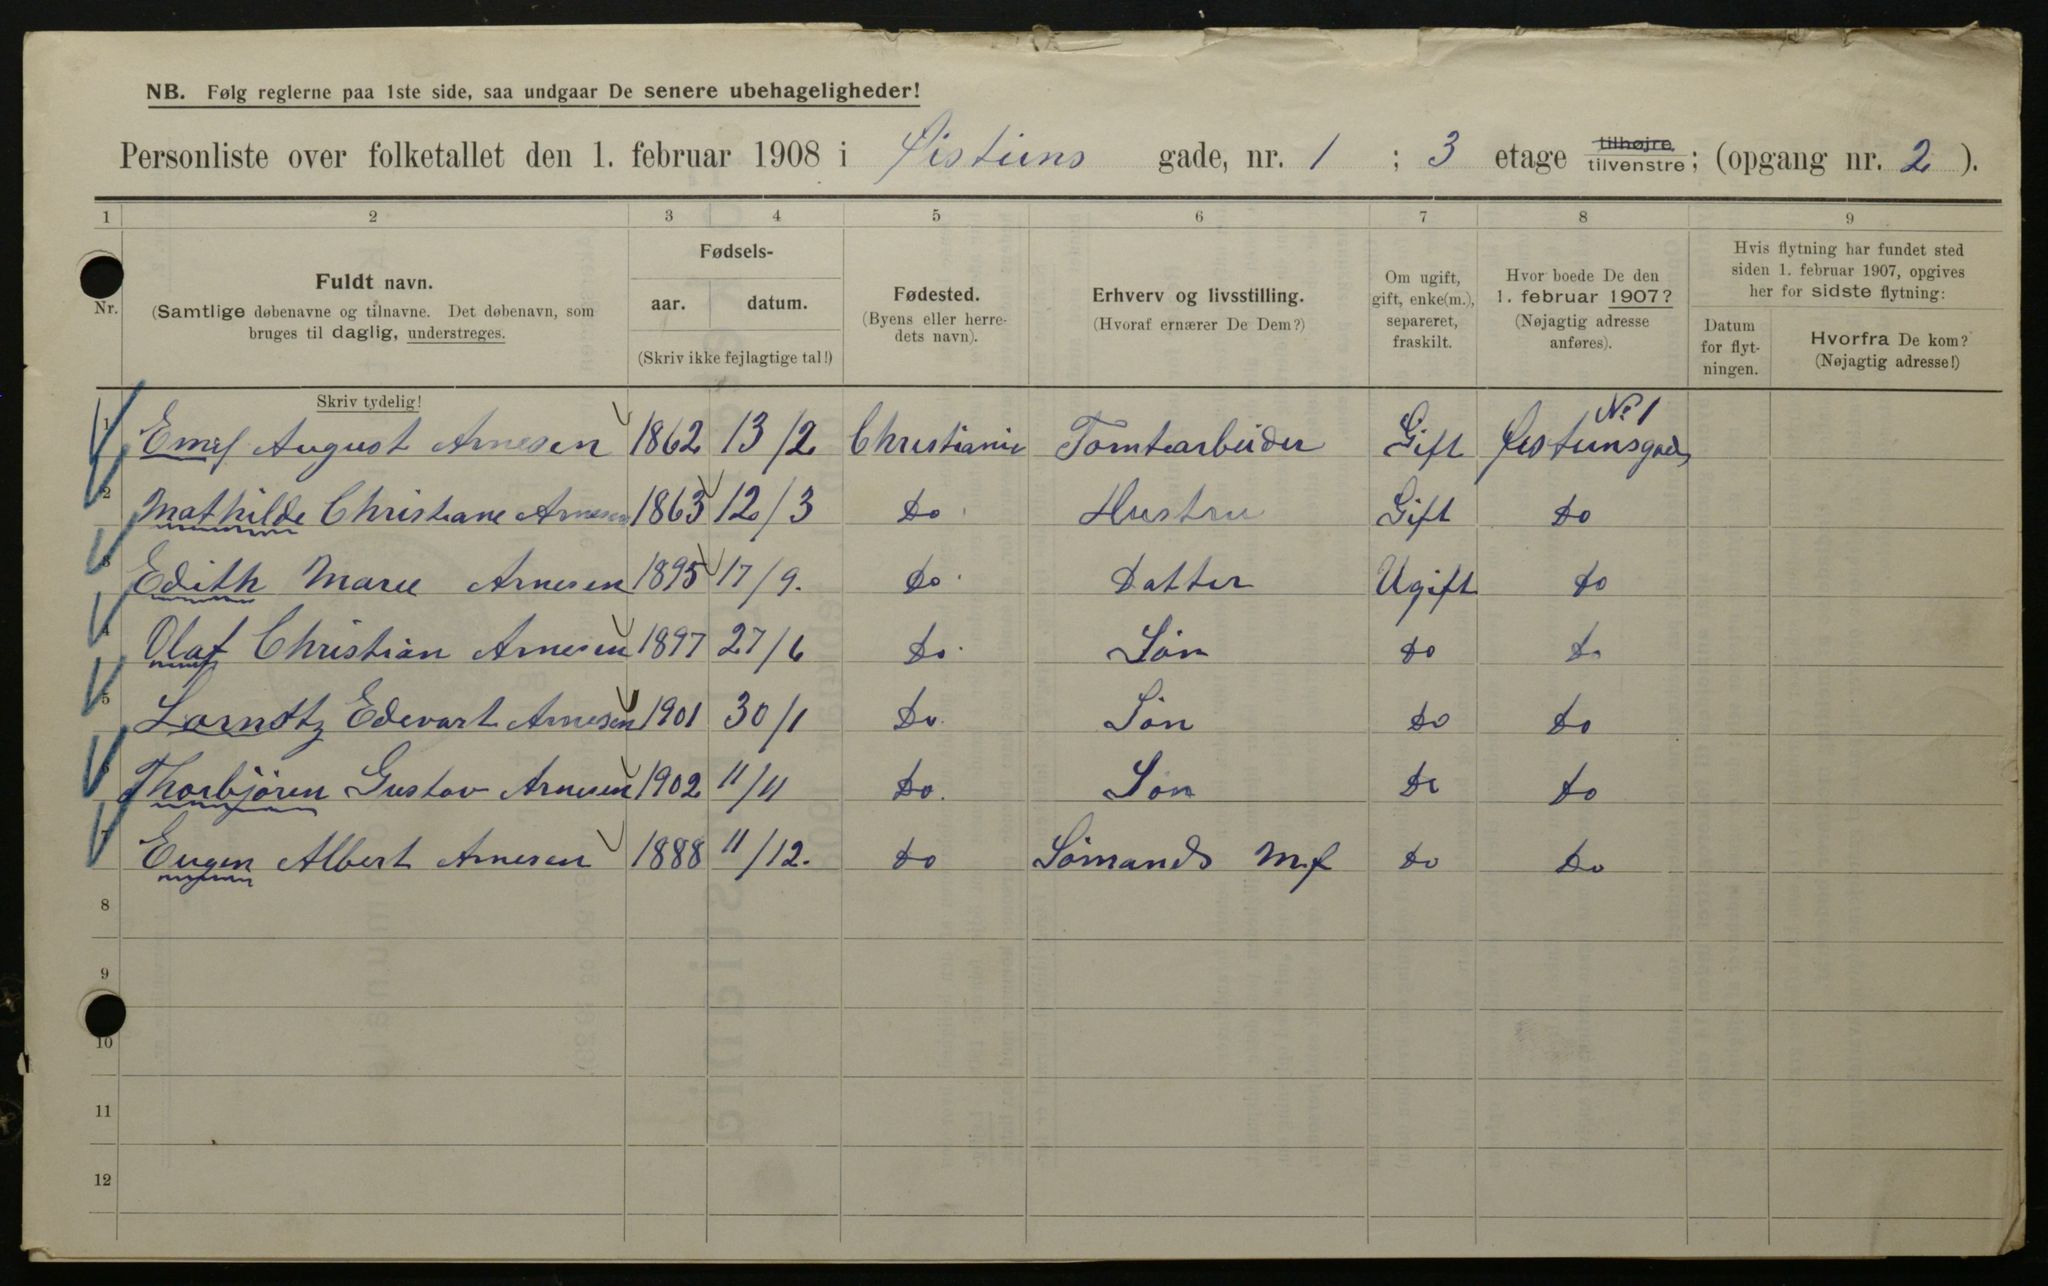 NB. Følg reglerne paa 1ste side, saa undgaar De senere ubehageligheder!
Personliste over folketallet den 1. februar 1908 i Øistiens gade, nr. 1 ; 3 etage tilhøjre, tilvenstre; (opgang nr. 2 ).
1 2 3 4 5 6 7 8 9
Nr.
Fuldt navn.
(Samtlige døbenavne og tilnavne. Det døbenavn, som
bruges til daglig, understreges.
Skriv tydelig!
Fødsels-
aar. datum.
(Skriv ikke fejlagtige tal!)
Fødested.
(Byens eller herre-
dets navn).
Erhverv og livsstilling.
(Hvoraf ernærer De Dem?)
Om ugift,
gift, enke(m.),
separeret,
fraskilt.
Hvor boede De den
1. februar 1907?
(Nøjagtig adresse
anføres).
Hvis flytning har fundet sted
siden 1. februar 1907, opgives
her for sidste flytning:
Datum
for flyt-
ningen.
Hvorfra De kom?
(Nøjagtig adresse!)
No 1
1 Emil August Arnesen 1862 13/2 Christiania Tomtearbeider Gift Øistunsgade
2 Mathilde Christiane Arnesen 1863 12/3 Do Hustru Gift Do
3 Edith Marie Arnesen 1895 17/9. Do. Datter Ugift Do
4 Olaf Christian Arnesen 1897 27/6 Do. Søn Do Do
5 Lorndtz Edevart Arnesen 1901 30/1 Do. Søn Do Do
6 Thorbjören Gustav Arnesen 1902 11/11 Do. Søn Do Do
7 Eugen Albert Arnesen 1888 11/12. Do Sömands Do Do
8
9
10
11
12